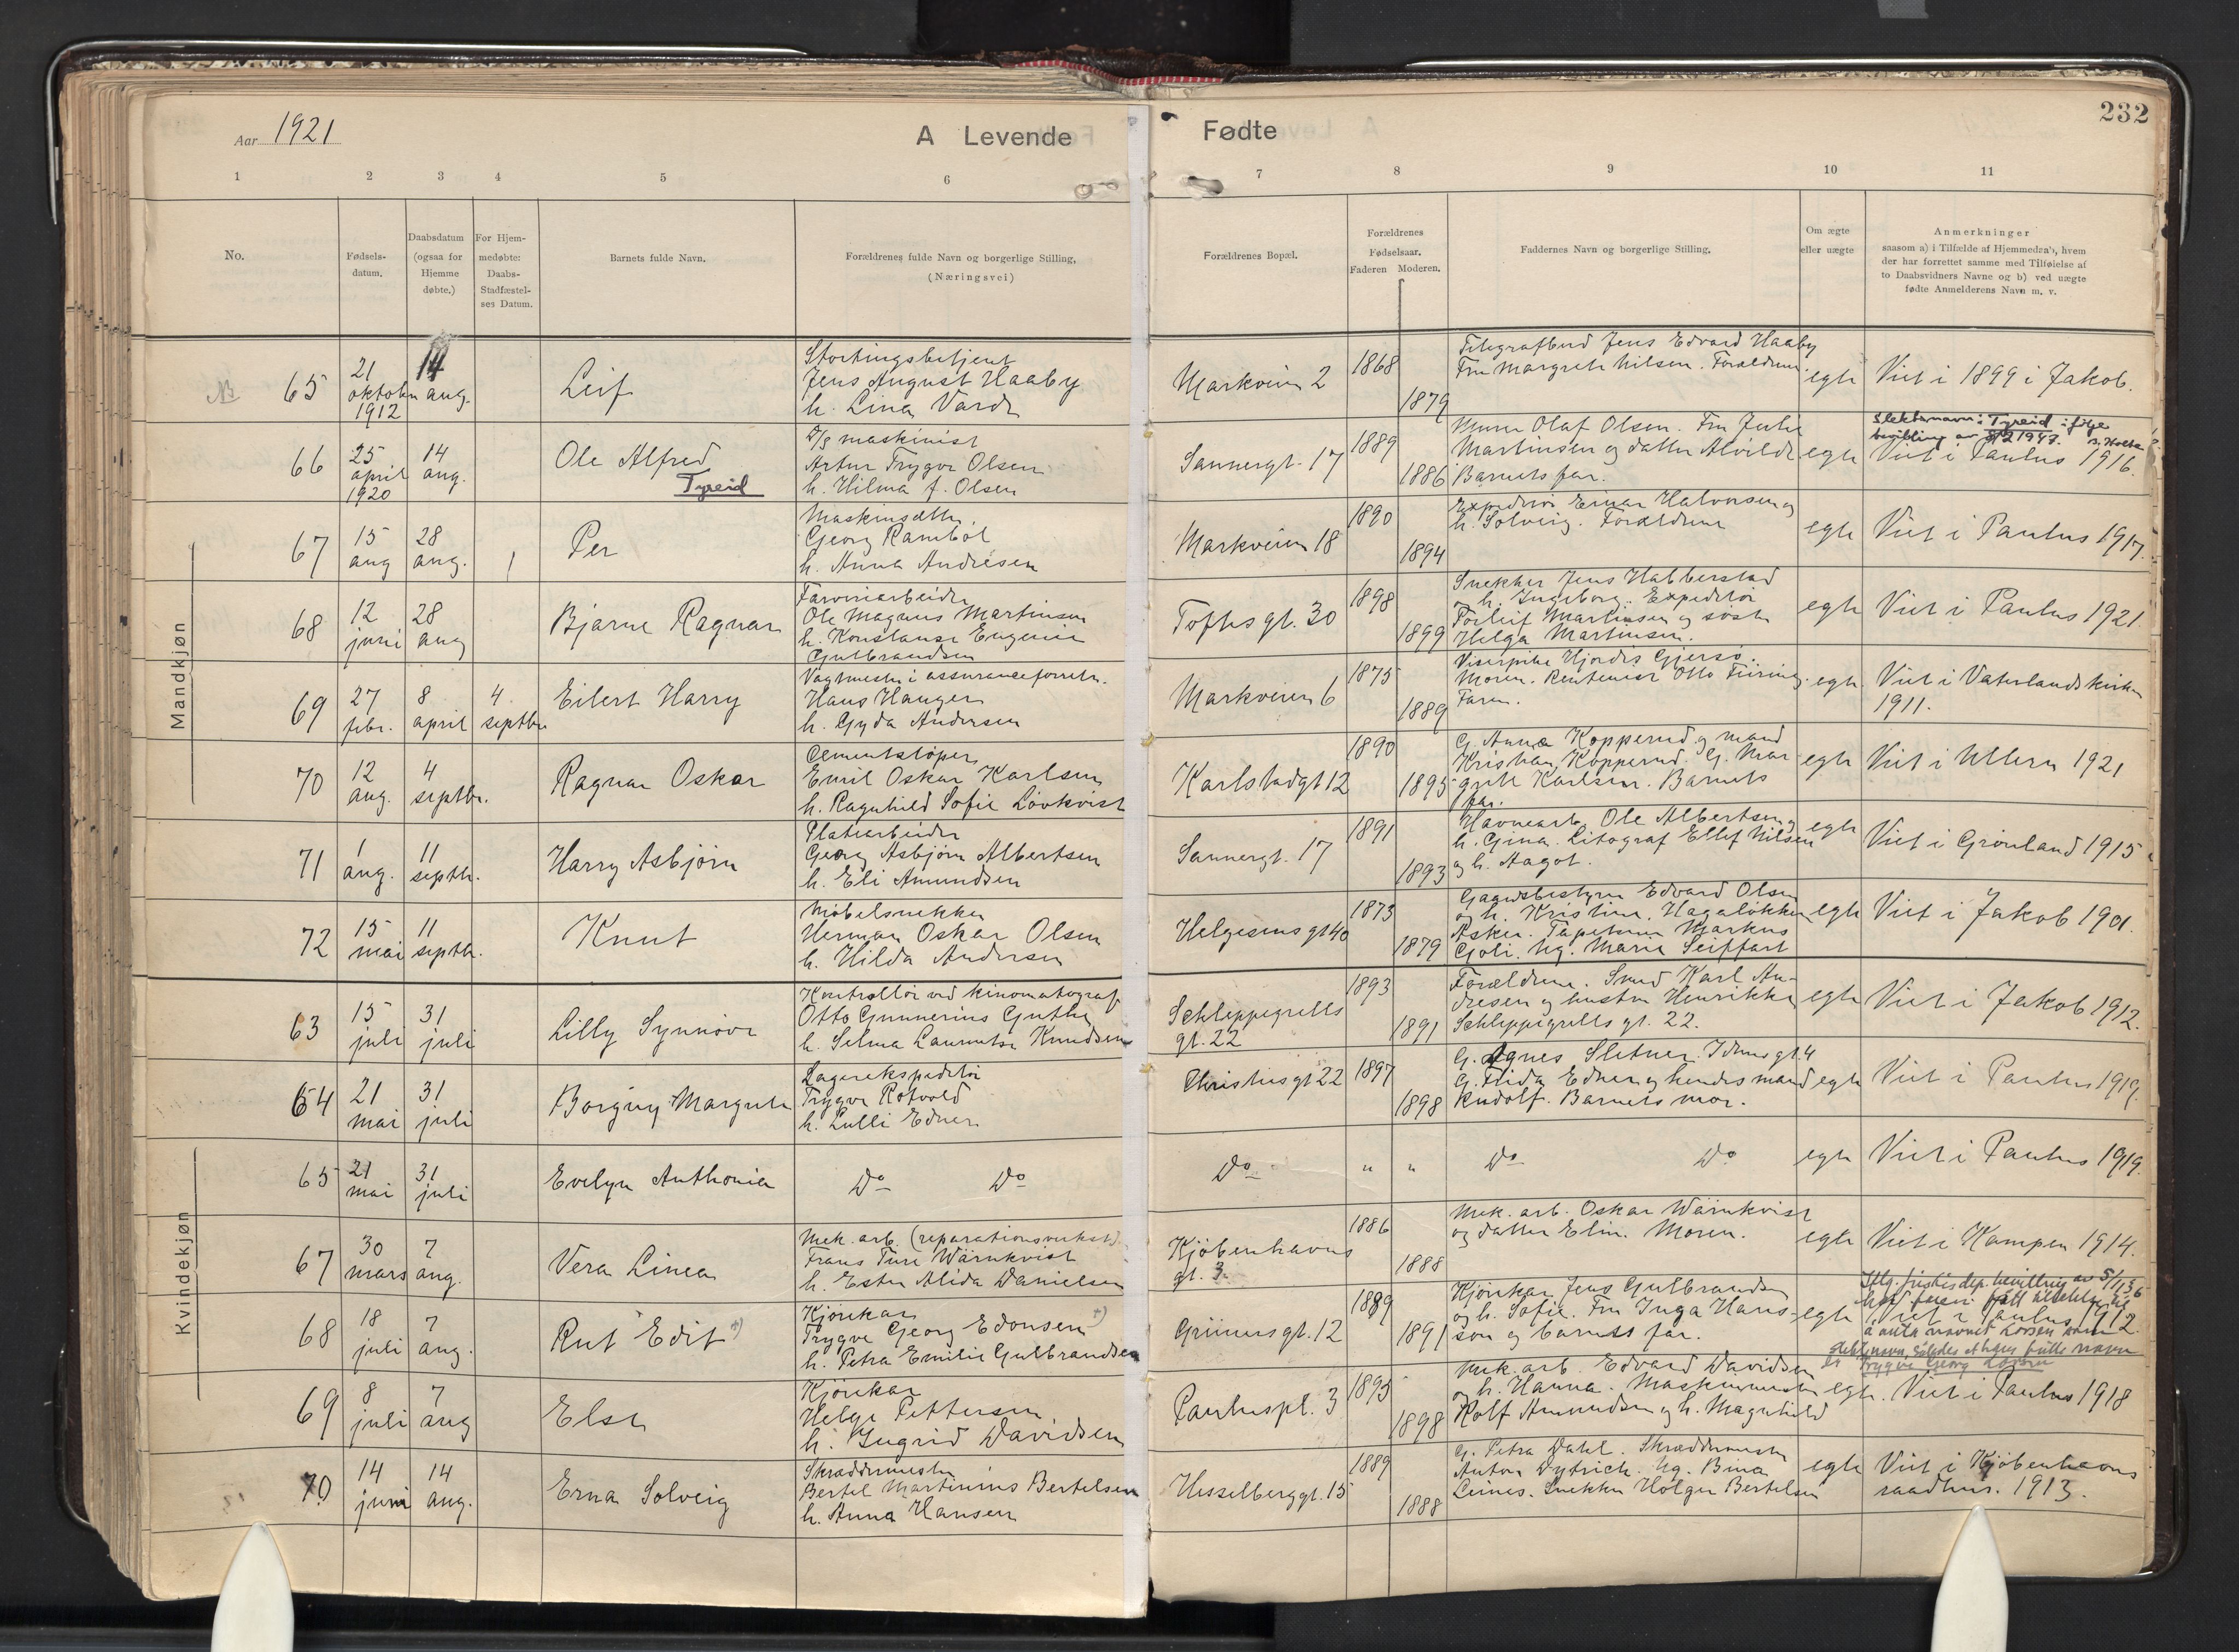 Aar 1921
A Levende Fødte
232
1 2 3 4 5 6 7 8 9 10 11
No.
Fødsels-
datum.
Daabsdatum
(ogsaa for
Hjemme
døbte.)
For Hjem-
medøbte:
Daabs-
Stadfæstel-
ses Datum.
Barnets fulde Navn.
Forældrenes fulde Navn og borgerlige Stilling,
(Næringsvei)
Forældrenes Bopæl.
Forældrenes
Fødselsaar.
Faderen Moderen.
Faddernes Navn og borgerlige Stilling.
Om ægte
eller uægte
Anmerkninger
saasom a) i Tilfælde af Hjemmedaab, hvem
der har forrettet samme med Tilføielse af
to Daabsvidners Navne og b) ved uægte
fødte Anmelderens Navn m. v.
Mandkjøn
65
21
oktober
1912
14
aug.
Leif
Stortingsbetjent
Jens August Haaby
h. Lina Varde
Markveien 2
1868
1879
Telegrafbud Jens Edvard Haaby
Fru Margrete Nilsen. Forældrene.
egte
Viet i 1899 i Jakob.
66
25
april
1920
14
aug.
Ole Alfred
Tyreid
D/S maskinist
Artur Trygve Olsen
h. Hilma f. Olsen
Sannergt. 17
1889
1886
Murer Olaf Olsen. Fru Julie
Martinsen og datter Alvilde
Barnets far.
egte
Slektsnavn: Tyreid ifølge
bevilling av 1947.
Viet i Paulus 1916.
67
15
aug
28
aug.
Per
Maskinsætter
Georg Ramböl
h. Anna Andresen
Markveien 18
1890
1894
Expeditör Einar Halvorsen og
h. Solveig. Forældrene
egte
Viet i Paulus 1917.
68
12
juni
28
aug
Bjarne Ragnar
Farveriarbeider
Ole Magnus Martinsen
h. Konstanse Eugenie
Gulbrandsen
Toftesgt. 30
1898
1899
Snekker Jens Habberstad
og h. Ingeborg. Expeditör
Torleif Martinsen og söster
Helga Martinsen.
egte
Viet i Paulus 1921
69
27
febr.
8
april
4
septbr
Eilert Harry
Vagtmester i assuranceforretn.
Hans Hanger
h. Gyda Andersen
Markveien 6
1875
1889
Viserpike Hjördis Gjersö.
Moren. Rentenist Otto
Faren.
egte
Viet i Vaterlands kirken
1911.
70
12
aug.
4
septbr.
Ragnar Oskar
Cementstöper
Emil Oskar Karlsen
h. Ragnhild Sofie Lövkvist
Karlstadgt 12
1890
1895
G. Anna Kopperud og mand
Kristian Kopperud. G. Mar
grete Karlsen. Barnets
far.
egte
Viet i Ullern 1921
71
1
aug.
11
septbr.
Harry Asbjörn
Platearbeider
Georg Asbjörn Albertsen
h. Eli Amundsen
Sannergt. 17
1891
1893
Havnearb. Ole Albertsen og
h. Gina. Litograf Ellef Nilsen
og h. Aagot.
egte
Viet i Grönland 1915
72
15
mai
11
septbr.
Knut
Möbelsnekker
Herman Oskar Olsen
h. Hilda Andersen
Helgesens gt 40
1873
1879
Gaardsbestyrer Edvard Olsen
og h. Kristine. Hagalökken
Asker. Tapetserer Markus
Gjoli. Ug. Marie Seiffart
egte
Viet i Jakob 1901.
Kvindekjøn
63
15
juli
31
juli
Lilly Synnöve
Kontrollör ved kinomatograf
Otto Gunnerius Guthe
h. Selma Laurentse Knudsen
Schleppegrells
gt. 22
1893
1891
Forældrene. Smed Karl An-
dresen og hustru Henrikke
Schleppegrells gt. 22.
egte
Viet i Jakob 1912.
64
21
mai
31
juli
Borgny Margrete
Lagerekspeditör
Trygve Rotvold
h. Lulli Edner
Christies gt 22
1897
1898
G. Agnes Sletner. Iduns gt. 4
G. Frida Edner og hendes mand
Rudolf. Barnets mor.
egte
Viet i Paulus 1919.
65
21
mai
31
juli
Evelyn Anthonie
Do Do
Do
" "
Do Do
egte
Viet i Paulus 1919.
67
30
mars
7
aug.
Vera Linea
Mek. arb. (reparationsverkst.)
Frans Ture Wärnkvist
h. Ester Alida Danielsen
Kjöbenhavns
gt. 3
1886
1888
Mek. arb. Oskar Wärnkvist
og datter Elin. Moren.
egte
Viet i Kampen 1914.
68
18
juli
7
aug.
Rut Edit +)
Kjörekar +)
Trygve Georg Edonsen
h. Petra Emilie Gulbrandsen
Grünersgt. 12
1889
1891
Kjörekar Jens Gulbrandsen
og h. Sofie. Fru Inga Hans-
sen og barnets far.
egte
Viet i Paulus 1912.
69
8
juli
7
aug
Else
Kjörekar
Helge Pettersen
h. Ingrid Davidsen
Pauluspl. 3
1895
1898
Mek. arb. Edvard Davidsen
og h. Hanna. Maskinmester
Rolf Amundsen og h. Magnhild
egte.
Viet i Paulus 1918
70
14
juni
14
aug.
Erna Solveig
Skræddermester
Bertel Martinius Bertelsen
h. Anna Hansen
Hesselberggt. 15
1889
1888
G. Petra Dahl. Skræddermester
Anton Dytrich. Ug. Bina
Leines. Snekker Holger Bertelsen
egte
Viet i Kjöbenhavns
raadhus. 1913.